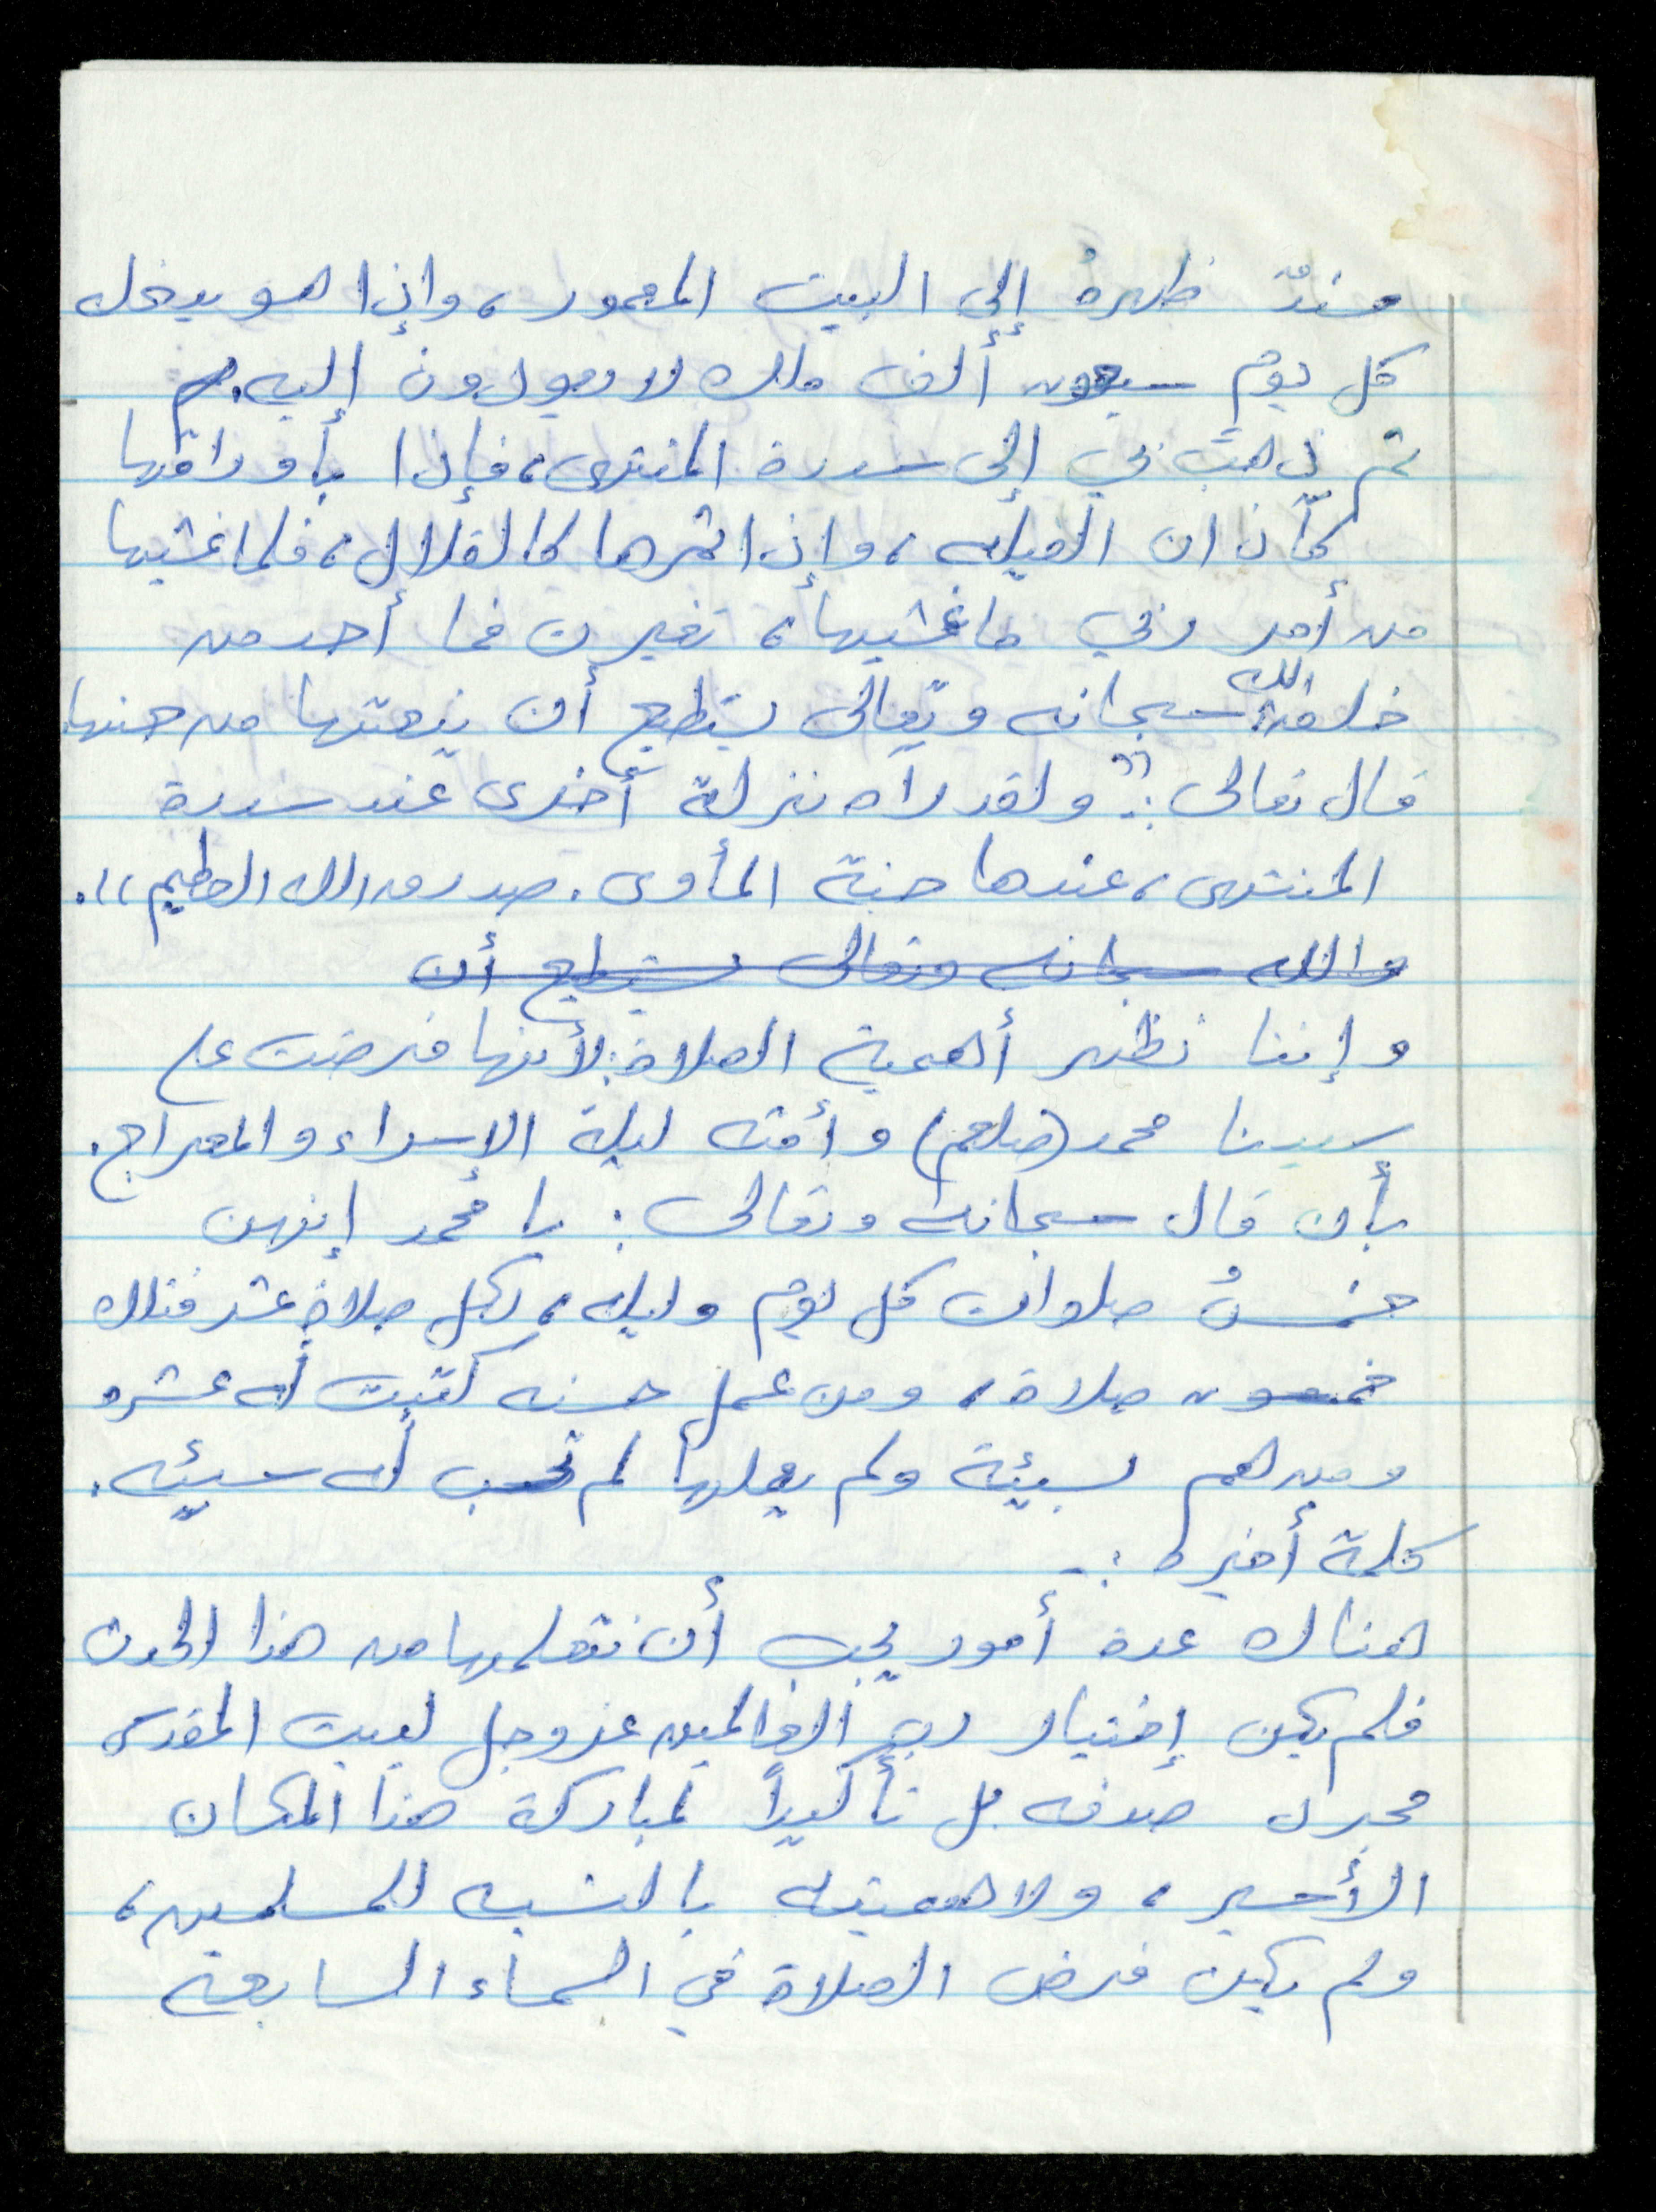 مسندٌ ظهرهُ إلى البيت المعمور، وإذا هو يدخله
كل يوم سبعون ألف ملك لا يعودون إليه.
ثم ذهبَ بي إلى سدرة المنتهى، فإذا بأوراقها
كآذان الفيله، وإذا ثمرها كالقلال، فلما غشيها
من أمر ربي ما غشيها، تغيرت فما أحد من
خلق الله سبحانه وتعالى يستطيع أن ينعتها من حسنها.
قال تعالى: "ولقد رآه نزلة أخرى عند سدرة
المنتهى، عندها جنة المأوى. صدق الله العظيم".
والله سبحانه وتعالى يستطيع أن
وإننا نظهر أهمية الصلاة: لأنها فرضت على
سيدنا محمد (صلعم) وأمته ليلة الإسراء والمعراج.
بأن قال سبحانه وتعالى: يا محمد إنهن
خمسُ صلوات كل يوم وليله، لكل صلاة عشر فتلك
خمسون صلاة، ومن عمل حسنه كتبت له عشره
ومن هم بسيئة ولم يعملها لم تحسب له سيئه.
كلمة أخيره :-
هناك عدة أمور يجب أن نتعلمها من هذا الحدث
فلم يكن إختيار رب العالمين عز وجل لبيت المقدس
مجرد صدفه بل تأكيداً لمباركة هذا المكان
الأسير، ولاهميته بالنسبه للمسلمين،
ولم يكن فرض الصلاة في السماء السابعه